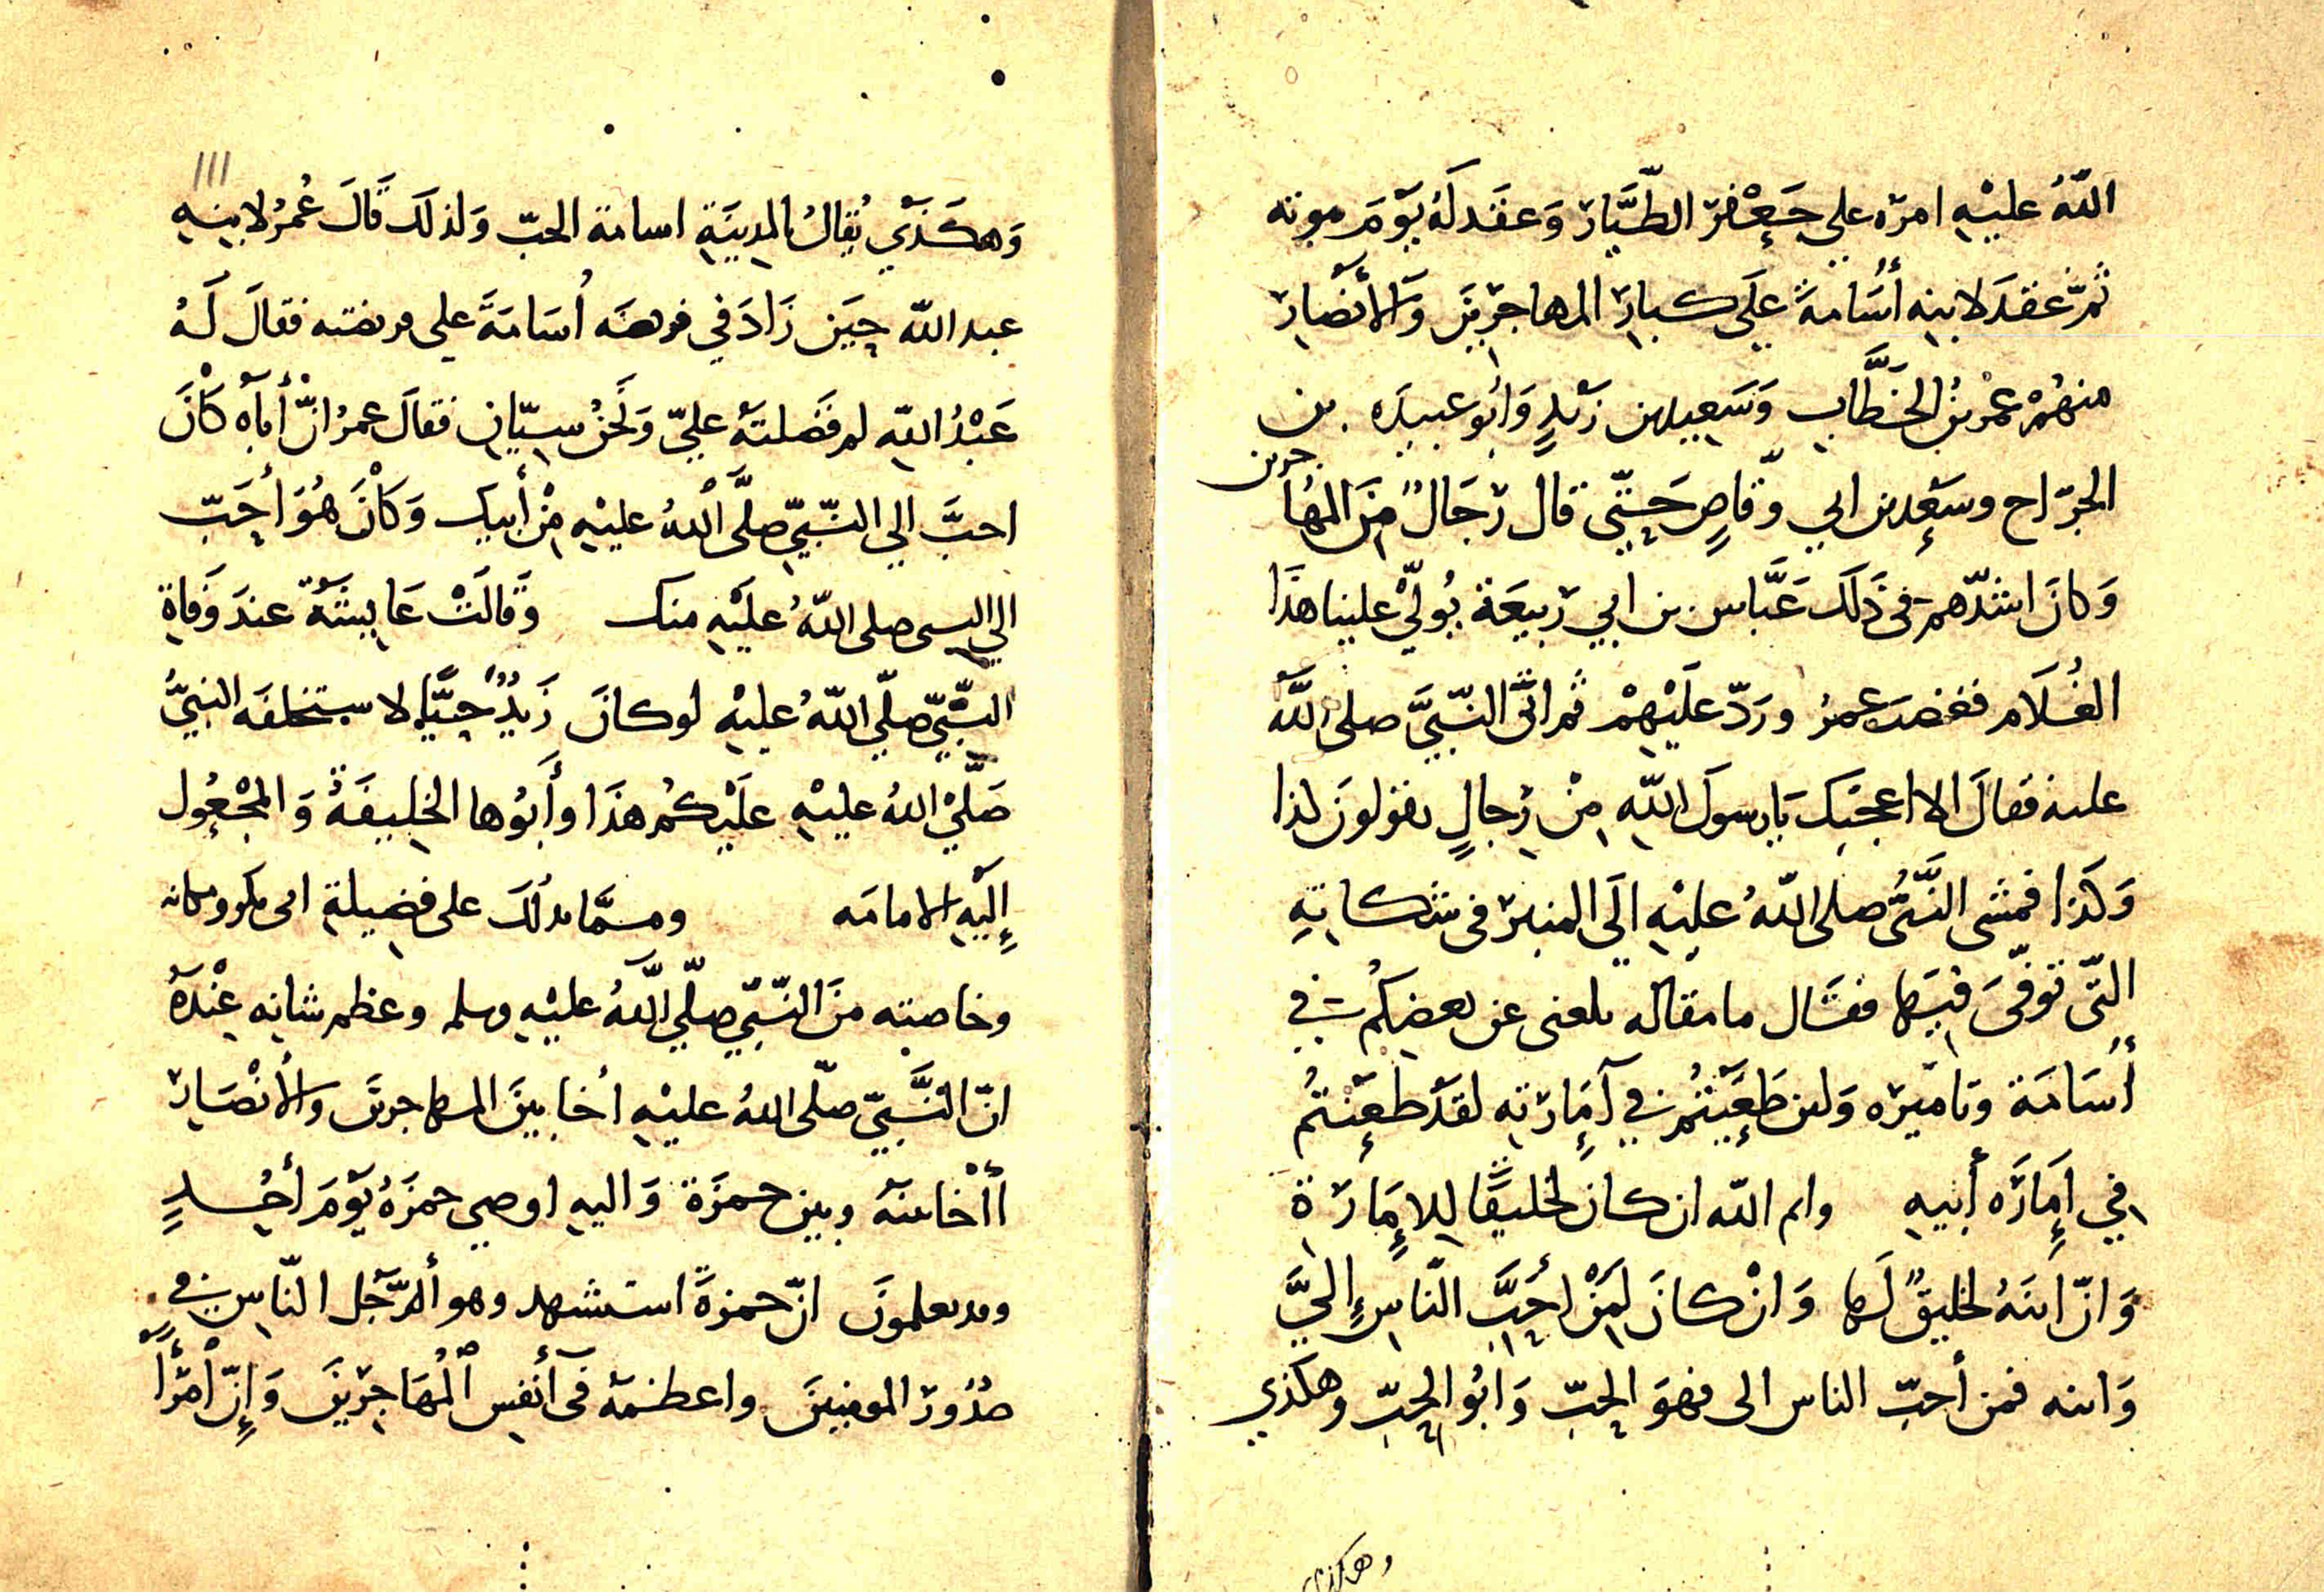 اللّهُ عليْهِ امرّه علي جَعْفرَ الطّيَّار وَعقَد لَهُ يَوْمَ موته
ثمّ عقدَ لابنِه أُسَامةَ عَلَى كبارِ المهاجرِينَ وَالأنْصارِ
منهُمْ عمْر بْنُ الخَطَّابِ وَسَعِيد بن زَيْدٍ وَابُو عبيدَه بن
الجرّاح وسَعْد بن ابي وقّاصٍ حَتّى قال رجَالٌ مِنَ المهُا
جرين
وَكانَ اشدّهم فى ذَلَك عَبَّاس بن ابي ربيعَة يُولّيْ علينا هذَا
الغُلَام فغضبَ عمرُ وردّ علَيْهِمْ ثم اتَى النّبيَّ صلى اللّه
عليه فقالَ الا اعجبَك يَا رسولَ اللّهِ مِنْ رِجالٍ يقولونَ لذا
وَكَذا فمشى النَّبىُّ صلى اللّهُ عليْهِ الَى المنبر فى شكاتِهِ
التّى توفّىَ فيَها فقَال ما مقاله بلغنى عن بعضِكُم في
أسَامَة وتاميره وَلئن طَعَنْتُم في آمَارتِه لقَدْ طعَنْتُم
في اَمَارَه أبيهِ وايم اللّه ان كان لخليقًا لِلإمَارَة
وَانّ ابنَهُ لخليقٌ لَها وَانْ كانَ لَمِنْ احَبَّ النّاسِ إليَّ
وَابنه فمن أحبّ الناس الى فهوَ الحِبّ وَابُو الحِبّ وهكذي
وهكذى
١١١
وَهكَذَي يُقالُ بالمدِينَةِ اسامة الحبّ وَلذلَك قَالَ عُمرُ لابنِهِ
عبد اللّه حِينَ زَادَ في فريضَه اُسَامَةَ على فريضته فقالَ لَهُ
عَبْدُ اللّهِ لم فَضلتَهُ عليّ وَنَحْنُ سِيّانِ فقالَ عمرُ انّ أباه كَانَ
احبَّ الي النّبيّ صلَّى اللّهُ عليْهِ مِنْ أبيك وَكانَ هُوَ أحَبّ
الي النبى صلى اللّهُ عَلَيْهِ منك وَقَالَتْ عَايشَةُ عندَ وَفاةِ
النّبيّ صلّي اللّهُ عليْهِ لو كانَ زَيدٌ حيًّا لاستخلفَه النبيُّ
صَلّيْ اللهُ عليْهِ علَيْكُم هذَا وأَبُوها الخليفَةُ وَالمجْعُول
إِلَيْهِ الامامَه ومسمَّا يدلُكَ على فضيلةِ ابى بكر ومكانه
وخاصته منَ النّبيّ صلّي اللّهُ عليْهِ وسلم وعظم شانِه عِنْدَهُ
انّ النّبيّ صلّى اللهُ عليْهِ اخَا بينَ المهاجرينَ والأنْصَارِ
أأخَا بينَهُ وبين حمزَة وَاليهِ اوصى حمزَهُ يَوْمَ أحُدٍ
وقد يعلمونَ انّ حمزةَ استشهد وهو أَلرّجل النّاس في
صُدُورِ المومنينَ واعظمَهُ فى أنفِس الْمُهَاجِرينَ وَإنّ امْرَأً